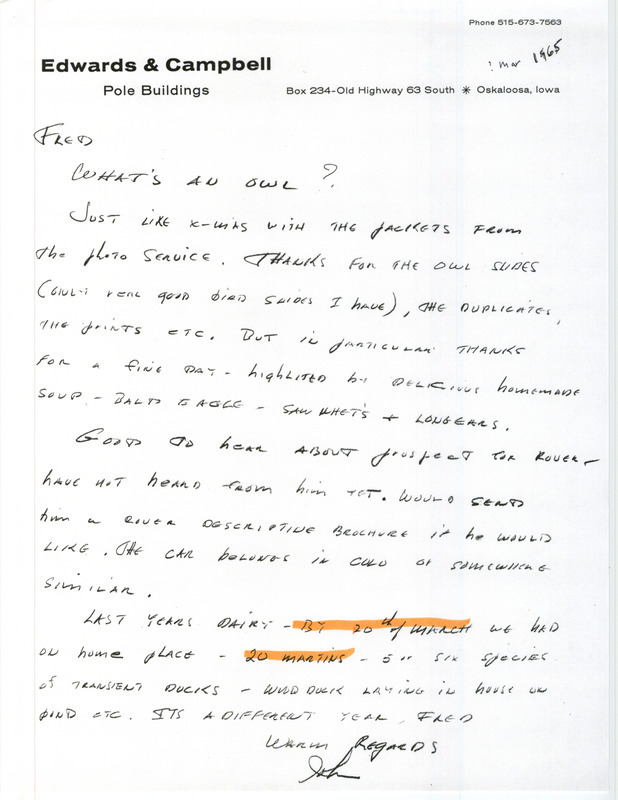 Phone 515-673-7563
? mar 1965
Edwards & Campbell
Pole Buildings
Box 234-Old Highway 63 South ✳ Oskaloosa, Iowa
FRED
WHAT'S AN OWL ?
JUST LIKE X-MAS WITH THE PACKETS FROM
The photo SERVICE. THANKS FOR THE OWL SLIDES
(ONLY REAL GOOD BIRD SLIDES I HAVE), THE DUPLICATES,
THE PRINTS ETC. BUT IN PARTICULAR THANKS
FOR A FINE DAY - highlited by DELICIOUS homemade
SOUP - BALD EAGLE - SAW WHET'S + LONGEARS.
GOOD TO hEAR ABOUT prospect FOR ROVER -
hAVE NOT hEARD FROM him YET. WOULD SEND
him A ROVER DESCRIPTIVE BROCHURE if he WOULD
LIKE. THE CAR bELONGS IN COLO OR SOMEWHERE
SIMILAR.
LAST YEARS DAIRY - BY 20th of MARCH WE HAD
ON home PLACE - 20 MARTINS - 5 or SIX SPECIES
of TRANSIENT DUCKS - WOOD DUCK LAYING IN HOUSE ON
POND ETC. ITS A DIFFERENT YEAR, FRED
WARM REGARDS
John